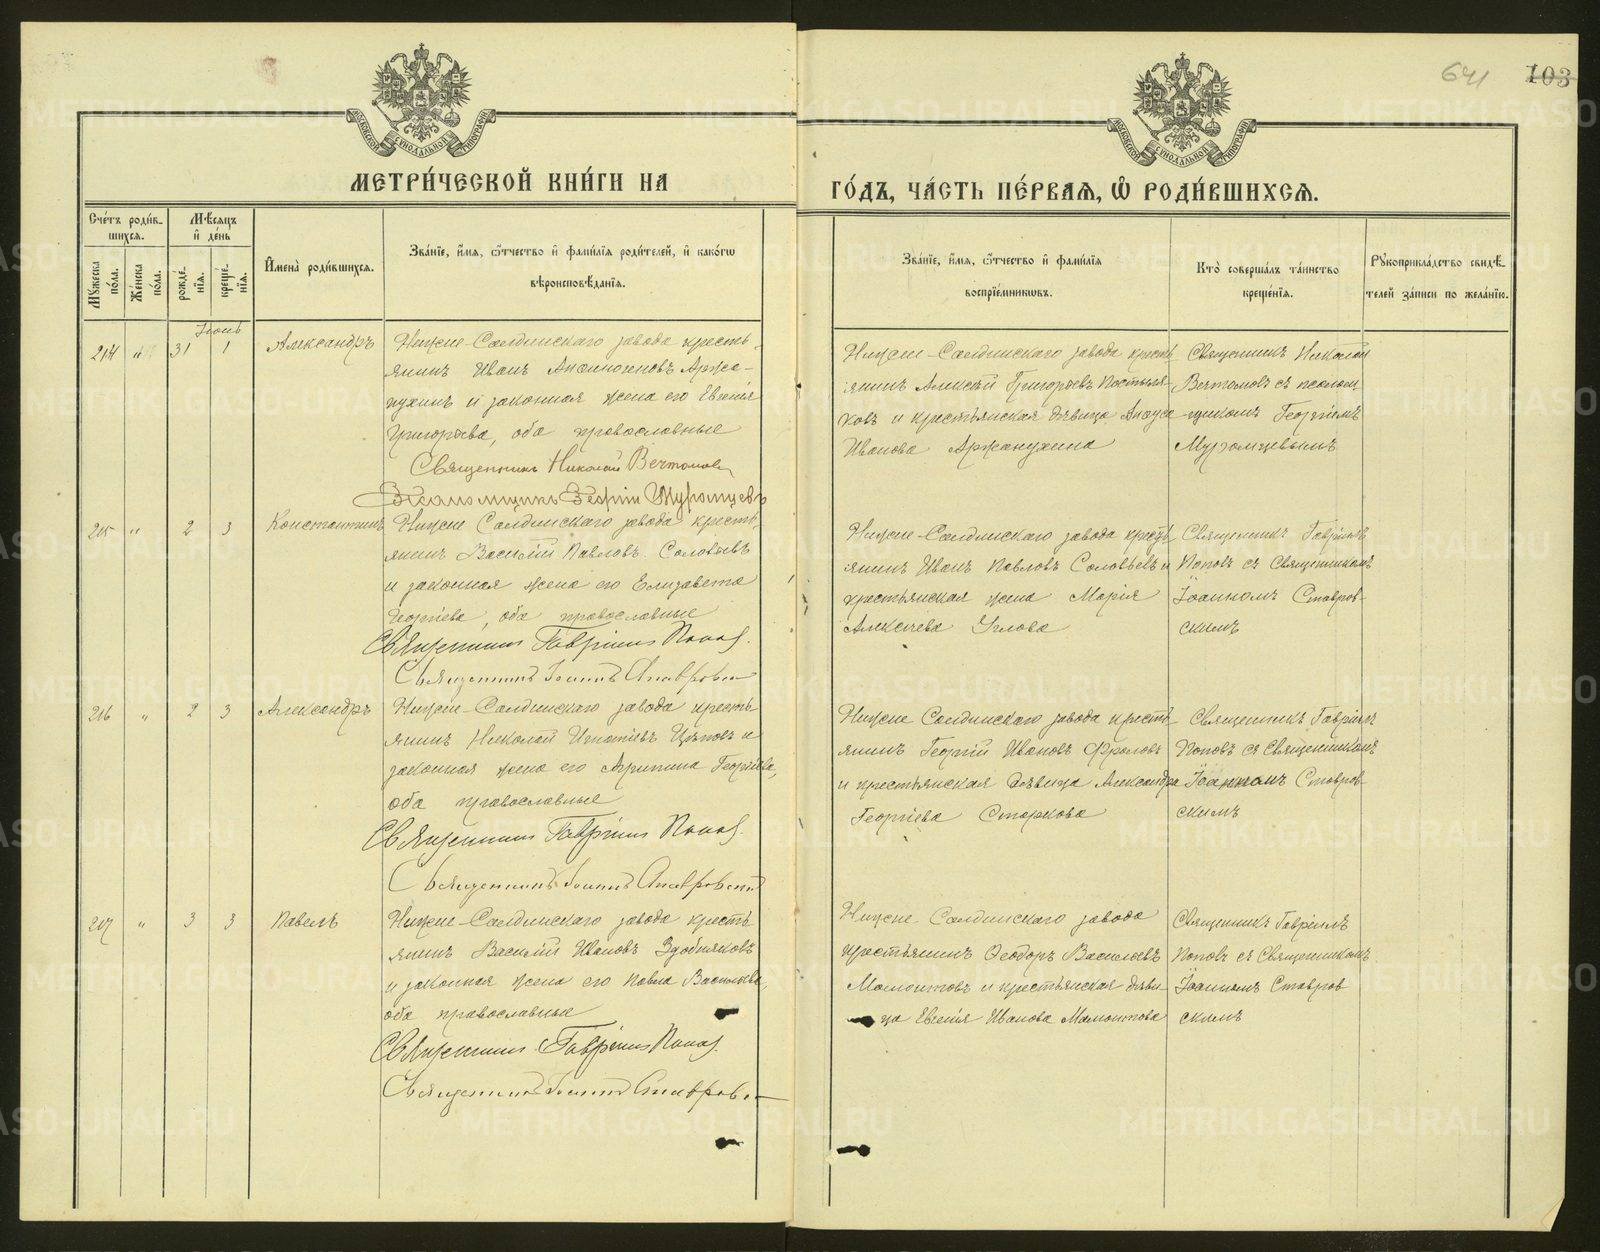 641 103
МОСКОВСКОЙ СУНОДАЛЬНОЙ ТИПОГРАФІИ
МОСКОВСКОЙ СУНОДАЛЬНОЙ ТИПОГРАФІИ
МЕТРИ́ЧЕСКОЙ КНИ́ГИ НА
ГО́ДЪ, ЧА́СТЬ ПЕ́РВАѦ, Ѡ҆ РОДИ́ВШИХСѦ.
Сче́тъ роди́в-
шихсѧ.
Мꙋ́жеска по́ла.
Же́нска по́ла.
Мѣ́сѧцъ
и҆ де́нь
рожде́нїѧ.
креще́нїѧ.
И҆мена̀ роди́вшихсѧ.
Зва́нїе, и҆́мѧ, ѻ҆́тчество и҆ фами́лїѧ роди́телей, и҆ како́гѡ
вѣроисповѣ́данїѧ.
Зва́нїе, и҆́мѧ, ѻ҆́тчество и҆ фами́лїѧ
воспрїе́мникѡвъ.
Кто̀ соверша́лъ та́инство
креще́нїѧ.
Рꙋкоприкла́дство свидѣ́-
телей за́писи по жела́нїю.
Іюнь
214 " 31 1 Александръ
Нижне-Салдинскаго завода кресть-
янинъ Иванъ Анфиногеновъ Аржа-
нухинъ и законная жена его Евгенія
Григорьева, оба православные
Священникъ Николай Вечтомовъ
Псаломщикъ Георгій Муромцевъ
Нижне-Салдинскаго завода кресть-
янинъ Алексѣй Григорьевъ Постыля-
ковъ и крестьянская дѣвица Анфуса
Иванова Аржанухина
Священникъ Николай
Вечтомовъ съ псалом-
щикомъ Георгіемъ
Муромцевымъ
215 " 2 3 Константинъ
Нижне Салдинскаго завода кресть-
янинъ Василій Павловъ Соловьевъ
и законная жена его Елизавета
Георгіева, оба православные
Священникъ Гавріилъ Поповъ.
Священникъ Іоаннъ Ставровскій
Нижне-Салдинскаго завода кресть-
янинъ Иванъ Павловъ Соловьевъ и
крестьянская жена Марія
Алексѣева Углова
Священникъ Гавріилъ
Поповъ съ Священникомъ
Іоанномъ Ставров-
скимъ
216 " 2 3 Александръ
Нижне-Салдинскаго завода кресть-
янинъ Николай Игнатіевъ Цѣповъ и
законная жена его Агрипина Георгіева,
оба православные
Священникъ Гавріилъ Поповъ.
Священникъ Іоаннъ Ставровскій
Нижне Салдинскаго завода кресть-
янинъ Георгій Ивановъ Фроловъ
и крестьянская дѣвица Александра
Георгіева Старкова
Священникъ Гавріилъ
Поповъ съ Священникомъ
Іоанномъ Ставров-
скимъ
217 " 3 3 Павелъ
Нижне-Салдинскаго завода кресть-
янинъ Василій Ивановъ Здобняковъ
и законная жена его Павла Васильева,
оба православные
Священникъ Гавріилъ Поповъ.
Священникъ Іоаннъ Ставровскій
Нижне-Салдинскаго завода
крестьянинъ Ѳеодоръ Васильевъ
Мамонтовъ и крестьянская дѣви-
ца Евгенія Иванова Мамонтова
Священникъ Гавріилъ
Поповъ съ Священникомъ
Іоанномъ Ставров
скимъ
METRIKI.GASO-URAL.RU